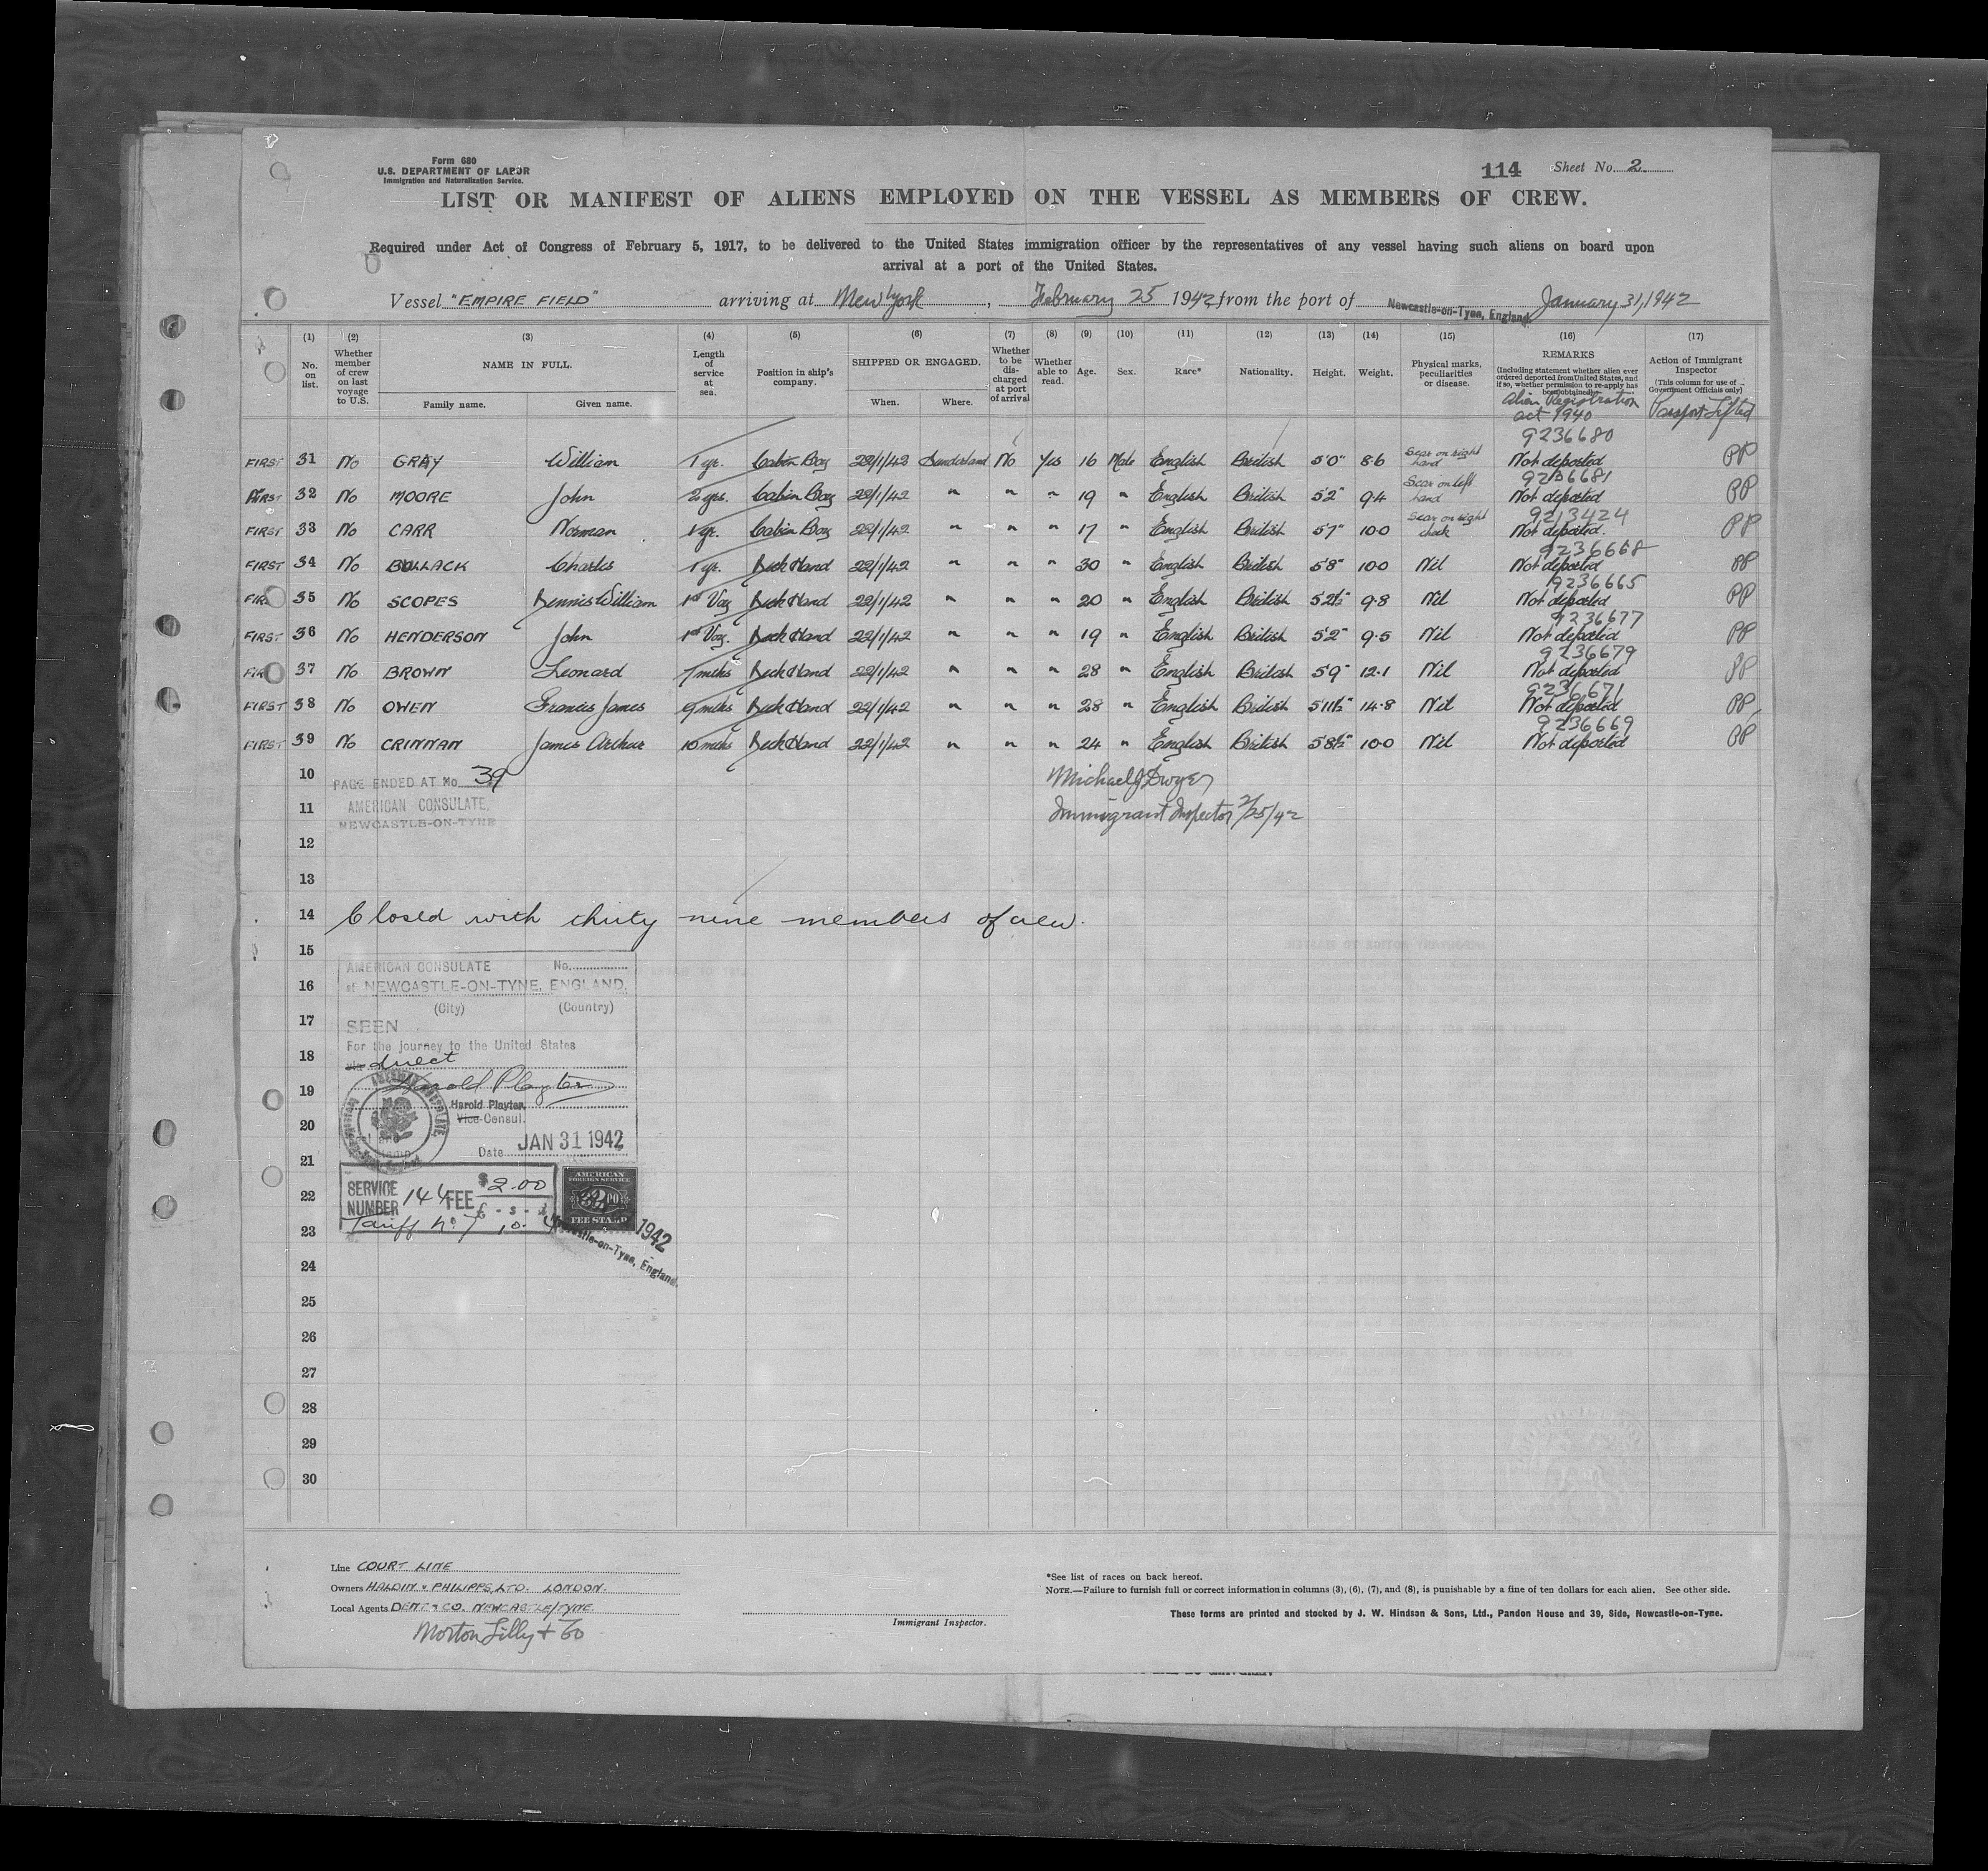 Form 680
U.S. DEPARTMENT OF LABOR
Immigration and Naturalization Service.
114 Sheet No. 2
LIST OR MANIFEST OF ALIENS EMPLOYED ON THE VESSEL AS MEMBERS OF CREW.
Required under Act of Congress of February 5, 1917, to be delivered to the United States immigration officer by the representatives of any vessel having such aliens on board upon
arrival at a port of the United States.
Vessel "EMPIRE FIELD" arriving at New York, February 25 1942 from the port of Newcastle-on-Tyne, England. January 31, 1942
(1) (2) (3) (4) (5) (6) (7) (8) (9) (10) (11) (12) (13) (14) (15) (16) (17)
No. on list.
Whether member of crew on last voyage to U.S.
NAME IN FULL.
Family name. Given name.
Length of service at sea.
Position in ship's company.
SHIPPED OR ENGAGED.
When. Where.
Whether to be discharged at port of arrival
Whether able to read.
Age.
Sex.
Race*
Nationality.
Height.
Weight.
Physical marks, peculiarities or disease.
REMARKS
(Including statement whether alien ever ordered deported from United States, and if so, whether permission to re-apply has been obtained)
Alien Registration act 1940
Action of Immigrant Inspector
(This column for use of Government Officials only)
Passport Lifted
9236680
FIRST 31 No GRAY William 1 yr. Cabin Boy 22/1/42 Sunderland No Yes 16 Male English British 5'0" 8.6 Scar on right hand Not deported PP
9236681
FIRST 32 No MOORE John 2 yrs. Cabin Boy 22/1/42 " " " 19 " English British 5'2" 9.4 Scar on left hand Not deported PP
9213424
FIRST 33 No CARR Norman 1 yr. Cabin Boy 22/1/42 " " " 17 " English British 5'7" 10.0 Scar on right cheek Not deported. PP
9236668
FIRST 34 No BULLACK Charles 1 yr. Deck Hand 22/1/42 " " " 30 " English British 5'8" 10.0 Nil Not deported PP
9236665
FIRST 35 No SCOPES Dennis William 1st Voy Deck Hand 22/1/42 " " " 20 " English British 5'2½" 9.8 Nil Not deported PP
9236677
FIRST 36 No HENDERSON John 1st Voy. Deck Hand 22/1/42 " " " 19 " English British 5'2" 9.5 Nil Not deported PP
9236679
FIRST 37 No BROWN Leonard 7 mths Deck Hand 22/1/42 " " " 28 " English British 5'9" 12.1 Nil Not deported PP
9236671
FIRST 38 No OWEN Francis James 9 mths Deck Hand 22/1/42 " " " 28 " English British 5'11½" 14.8 Nil Not deported PP
9236669
FIRST 39 No CRINNAN James Arthur 10 mths Deck Hand 22/1/42 " " " 24 " English British 5'8½" 10.0 Nil Not deported PP
10 PAGE ENDED AT No. 39 Michael J Dwyer
11 AMERICAN CONSULATE, Immigrant Inspector 2/25/42
NEWCASTLE-ON-TYNE
12
13
14 Closed with thirty nine members of crew.
15
AMERICAN CONSULATE No.
16 at NEWCASTLE-ON-TYNE, ENGLAND.
(City) (Country)
17 SEEN
For the journey to the United States
18 via direct
19 Harold Playter
Harold Playter,
20 Vice Consul.
Date JAN 31 1942
21
22 SERVICE NUMBER 144 FEE $2.00
£ - s - d
23 Tariff No. 7 10.
AMERICAN FOREIGN SERVICE
FEE STAMP
1942
Newcastle-on-Tyne, England.
24
25
26
27
28
29
30
Line COURT LINE
Owners HALDIN & PHILIPPS, LTD. LONDON.
Local Agents DENT & CO. NEWCASTLE/TYNE.
Morton Lilly & Co
Immigrant Inspector.
*See list of races on back hereof.
NOTE.—Failure to furnish full or correct information in columns (3), (6), (7), and (8), is punishable by a fine of ten dollars for each alien. See other side.
These forms are printed and stocked by J. W. Hindson & Sons, Ltd., Pandon House and 39, Side, Newcastle-on-Tyne.